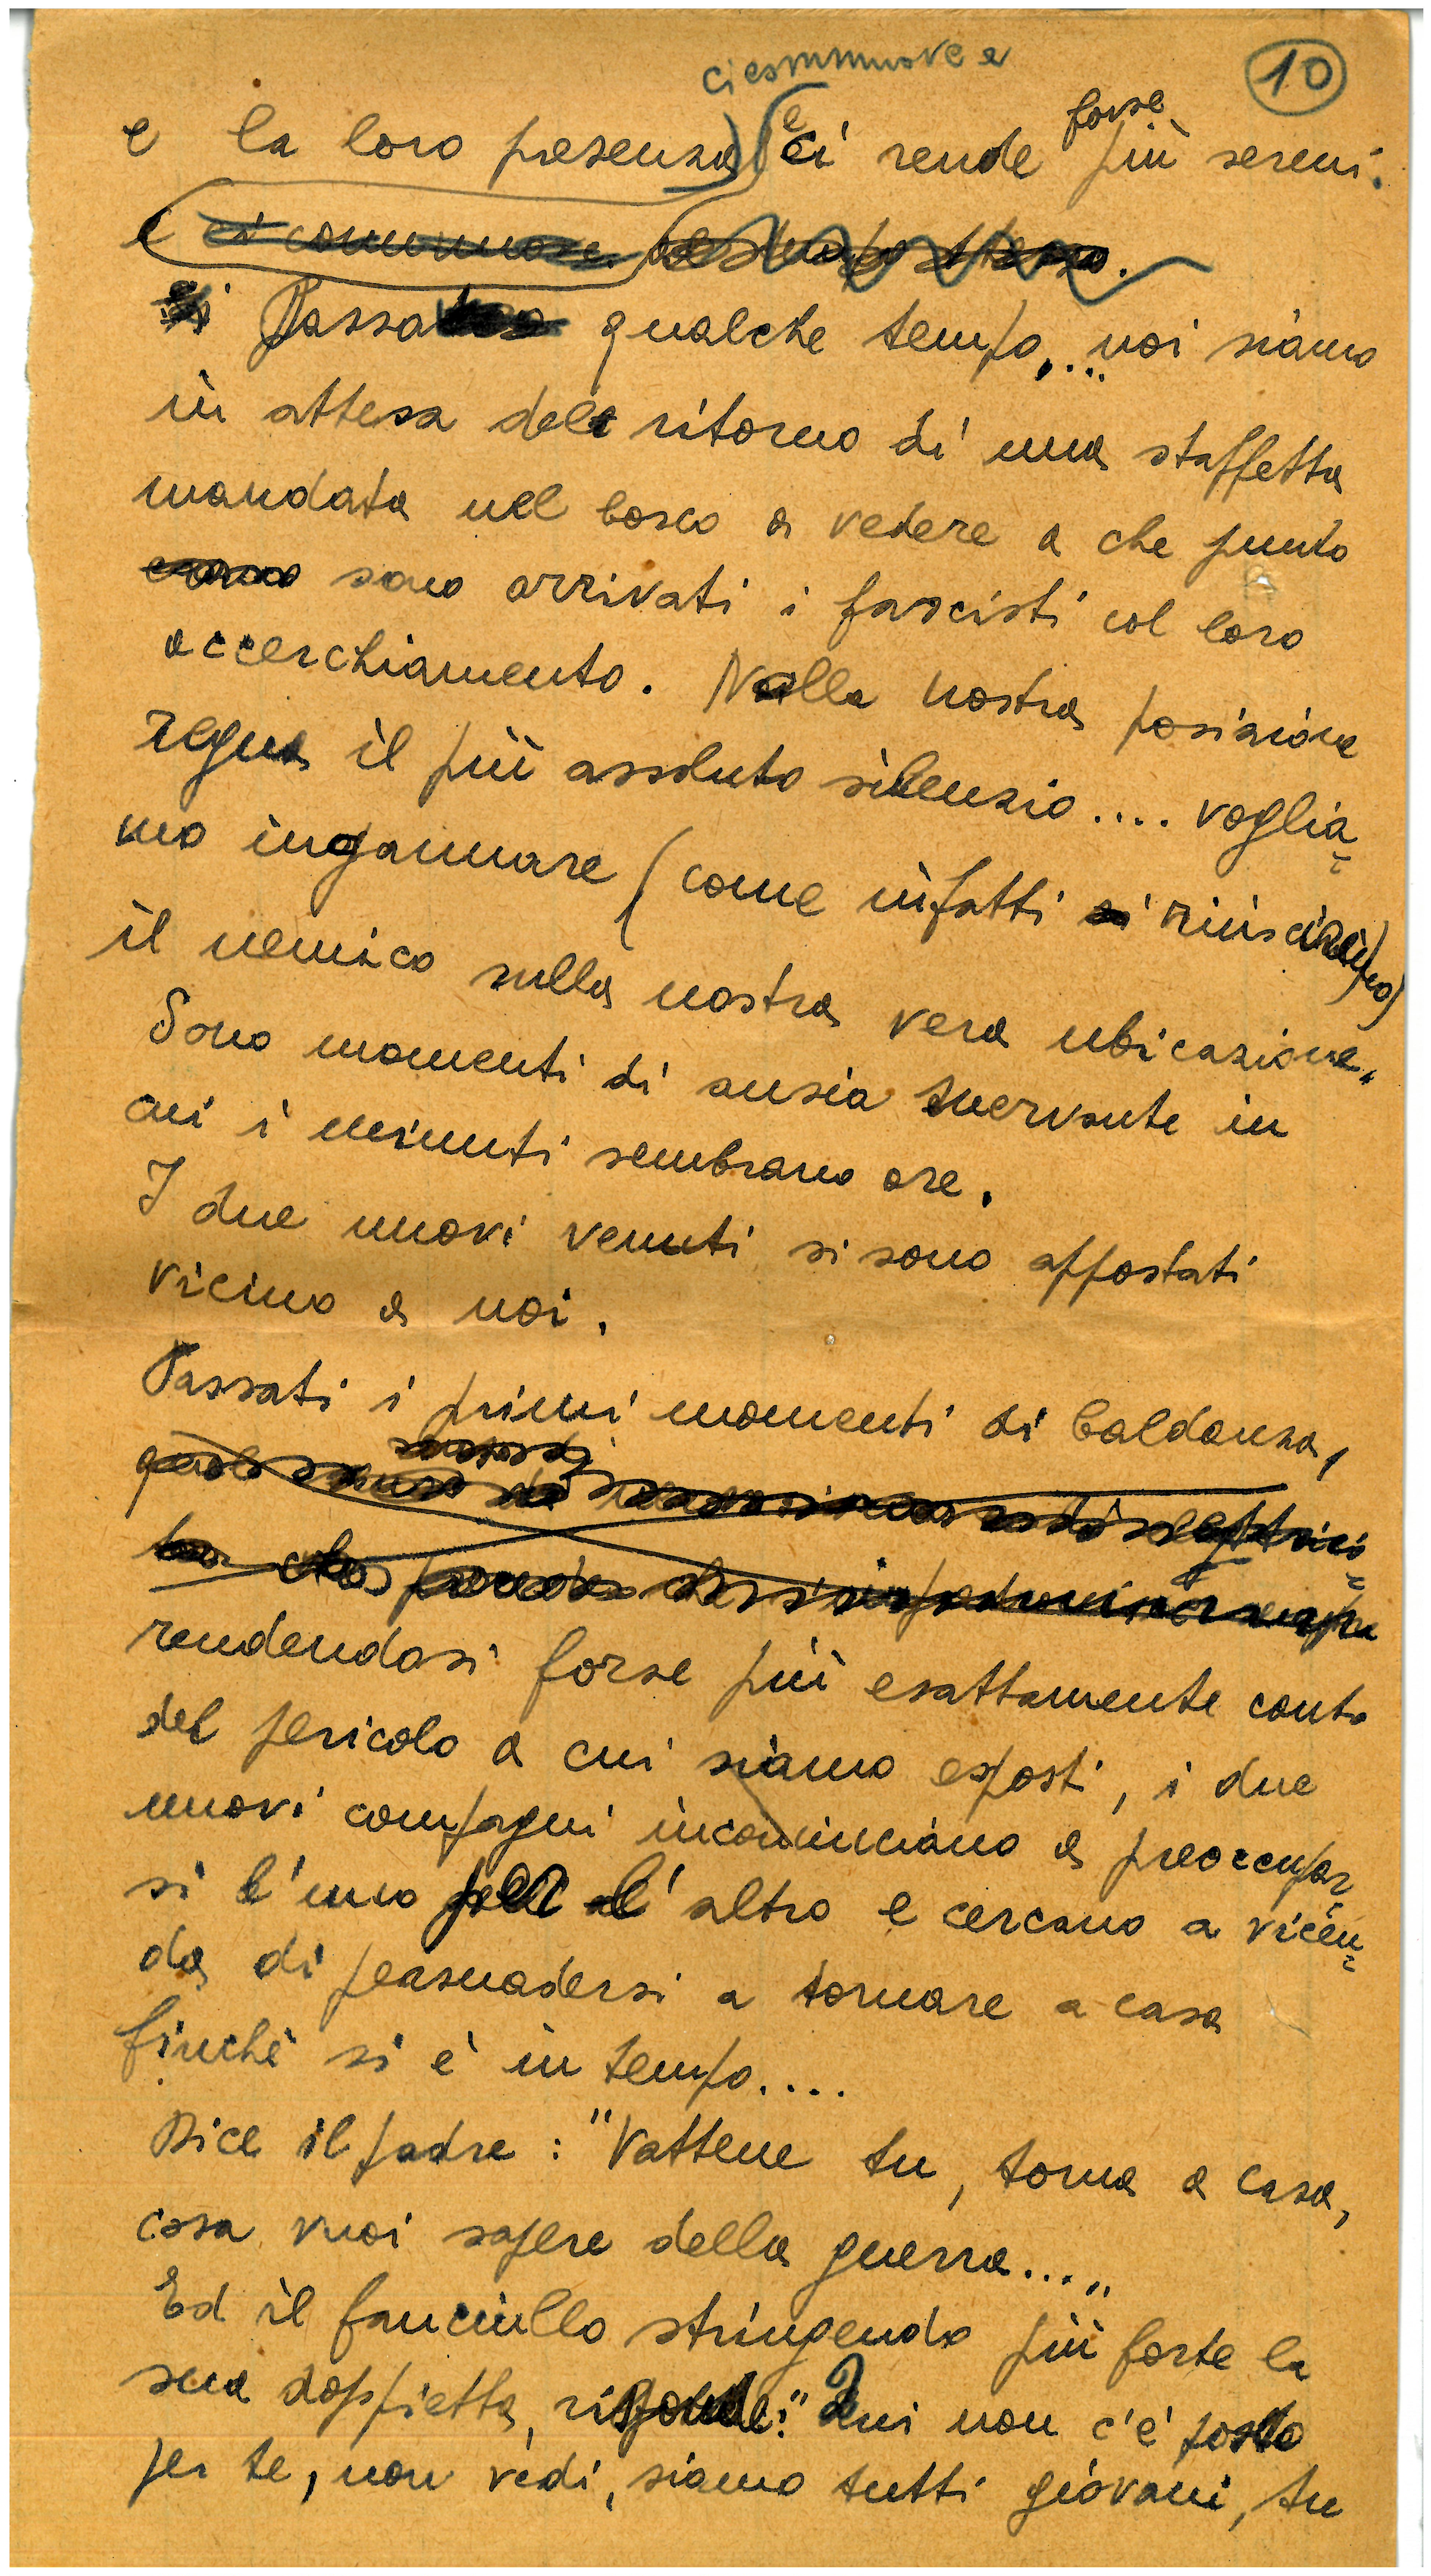 10
ci commuove e
e la loro presenza e ci rende forse più sereni.
ci commuove
Passa qualche tempo,... noi siamo
in attesa del ritorno di una staffetta
mandata nel bosco a vedere a che punto
sono arrivati i fascisti col loro
accerchiamento. Nella nostra posizione
regna il più assoluto silenzio.... voglia=
mo ingannare (come infatti riuscimmo)
il nemico sulla nostra vera ubicazione.
Sono momenti di ansia snervante in
cui i minuti sembrano ore.
I due nuovi venuti si sono appostati
vicino a noi.
Passati i primi momenti di baldanza,
rendendosi forse più esattamente conto
del pericolo a cui siamo esposti, i due
nuovi compagni incominciano a preoccupar=
si l'uno per l'altro e cercano a vicen=
da di persuadersi a tornare a casa
finchè si è in tempo....
Dice il padre: "Vattene tu, torna a casa,
cosa vuoi sapere della guerra...„
Ed il fanciullo stringendo più forte la
sua doppietta, risponde: "Qui non c'è posto
per te, non vedi, siamo tutti giovani, tu